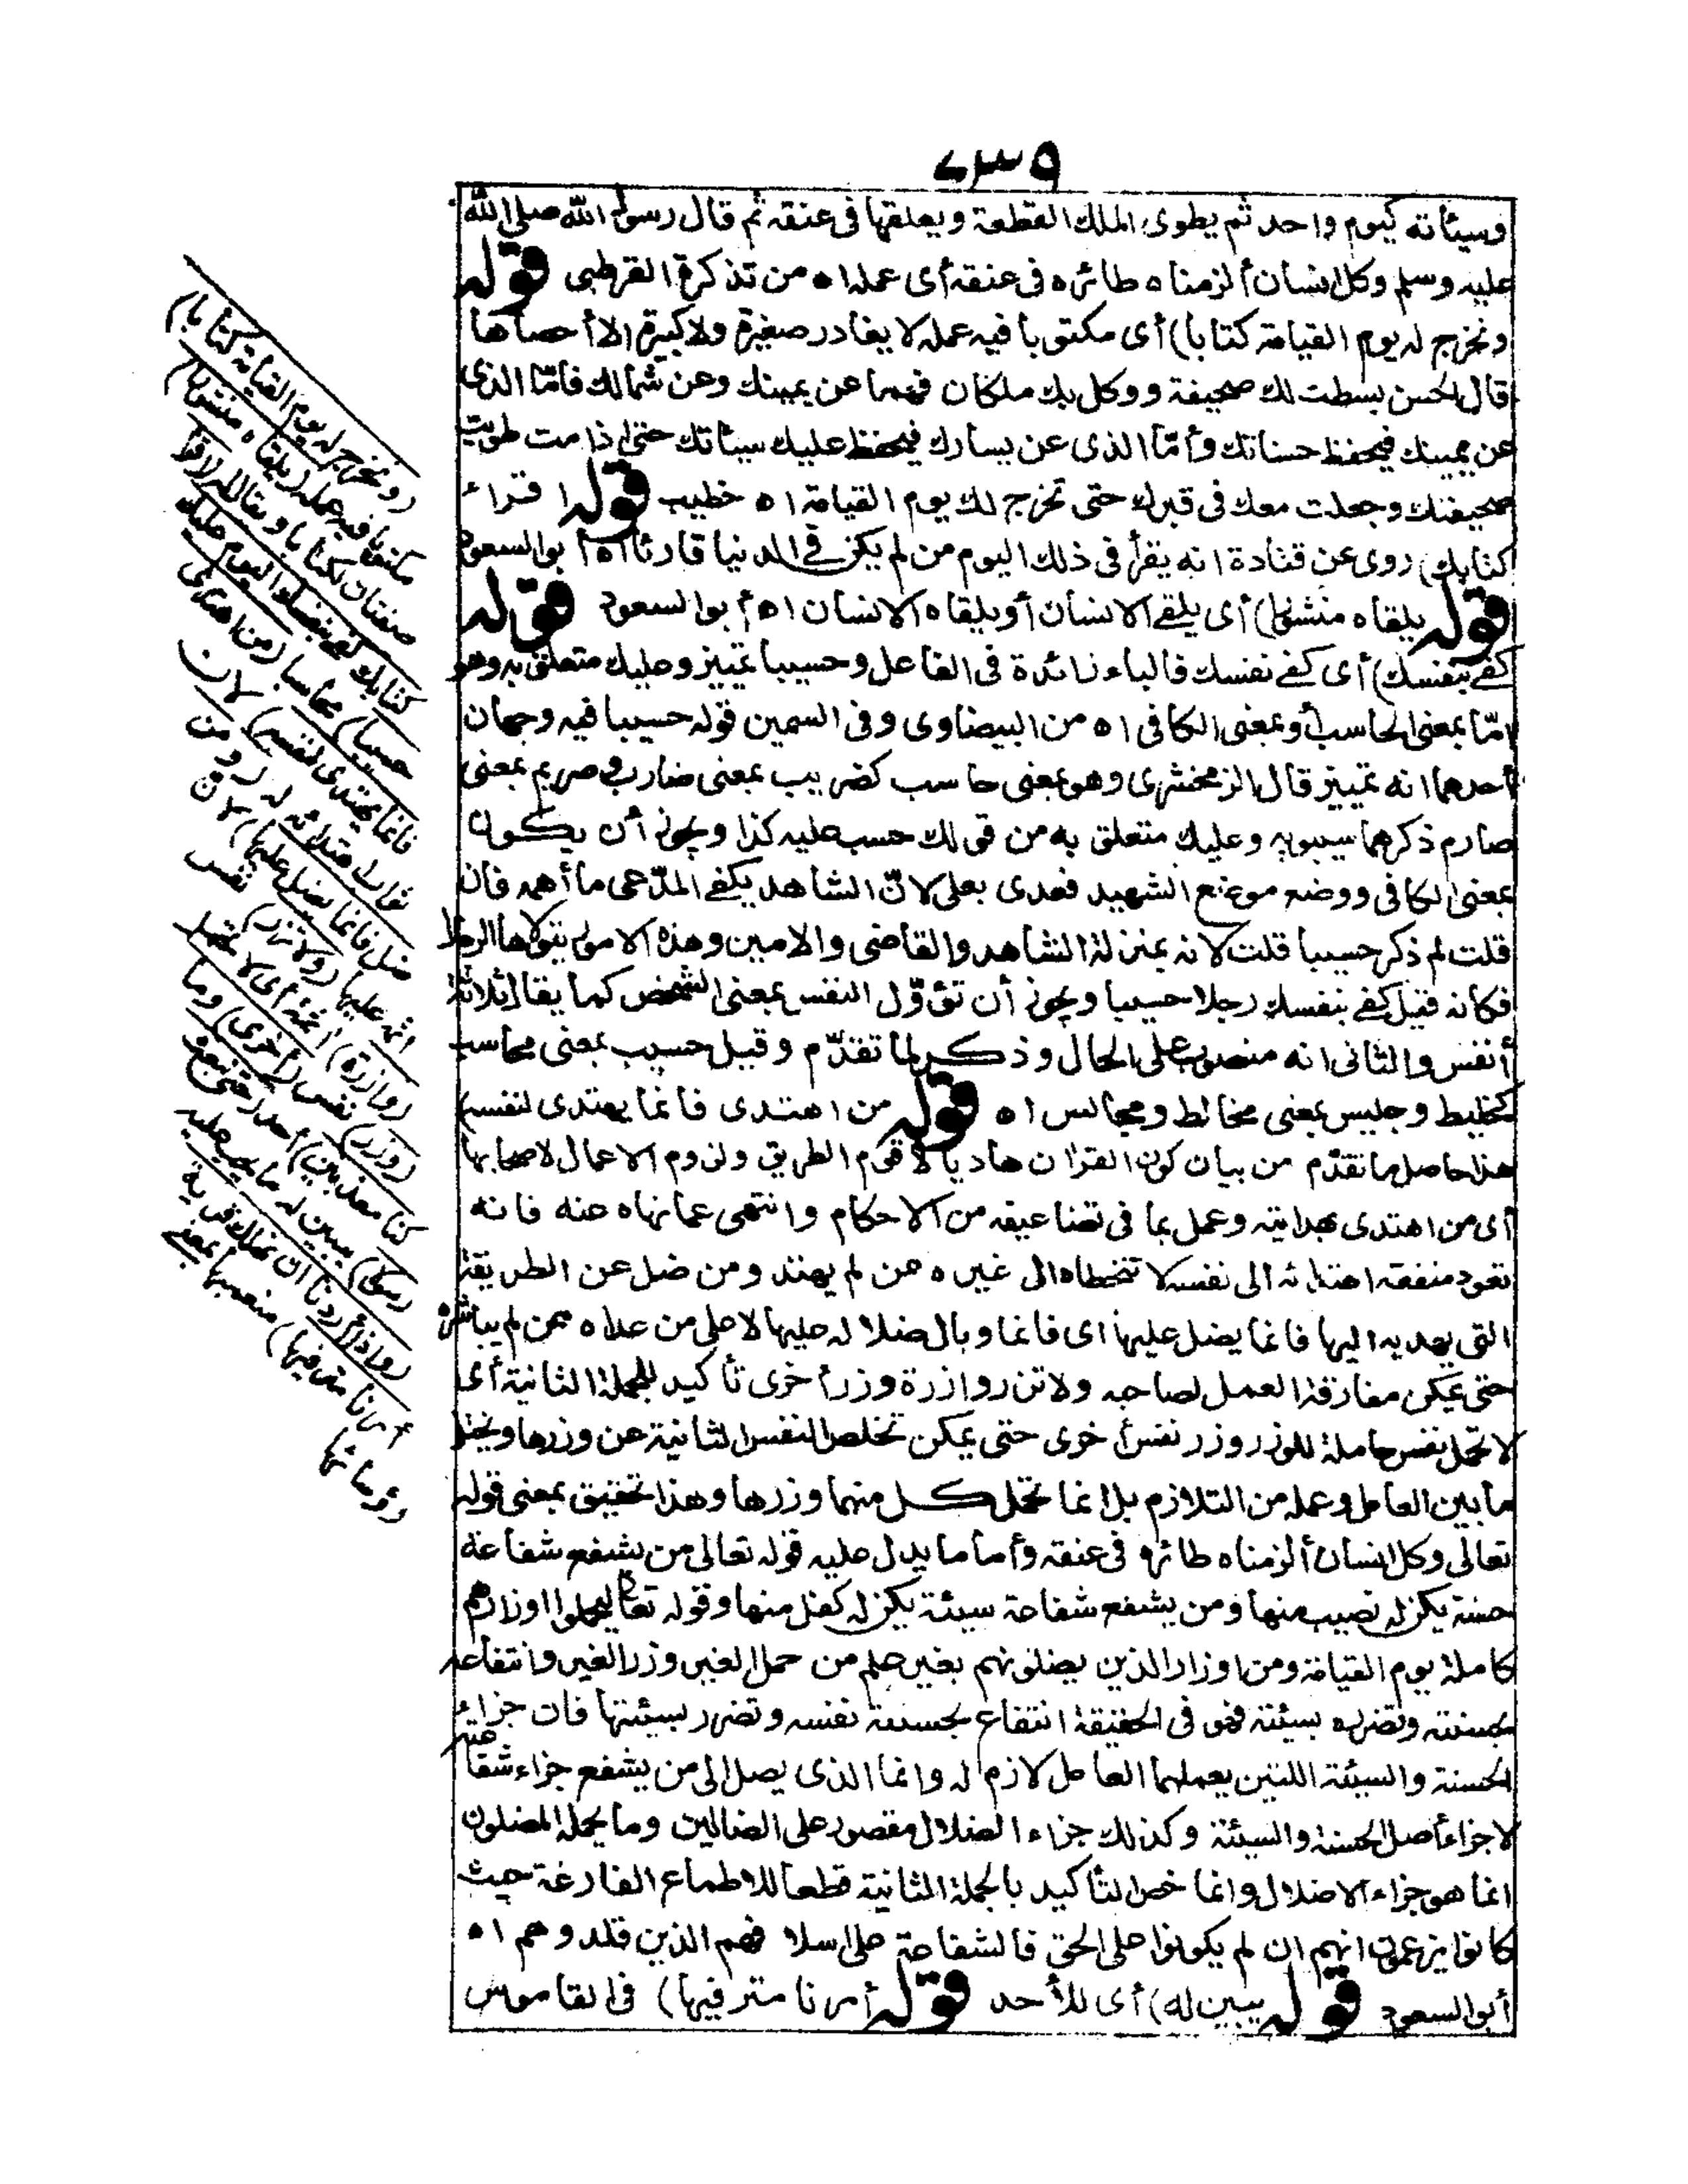 ٢٣٩
وسيئاته كيوم واحد ثم يطوى الملك القطعة ويعلقها فى عنقه ثم قال رسول الله صلى الله
عليه وسلم وكل انسان ألزمناه طائره فى عنقه أى عمله اه من تذكرة القرطبى قوله
ونخرج له يوم القيامة كتابا) أى مكتوبا فيه عمله لا يغادر صغيرة ولا كبيرة الا أحصاها
قال الحسن بسطت لك صحيفة ووكل بك ملكان فهما عن يمينك وعن شمالك فأما الذى
عن يمينك فيحفظ حسناتك وأمّا الذى عن يسارك فيحفظ عليك سيئاتك حتى اذا مت طويت
صحيفتك وجعلت معك فى قبرك حتى تخرج لك يوم القيامة اه خطيب قوله اقراء
كتابك) روى عن قتادة انه يقرأ فى ذلك اليوم من لم يكن فى الدنيا قارئا اه أبو السعود
قوله يلقاه منشورا) أى يلقى الانسان أو يلقاه الانسان اه أبو السعود قوله
كفى بنفسك) أى كفى نفسك فالباء زائدة فى الفاعل وحسيبا تمييز وعليك متعلق به وهو
امّا بمعنى الحاسب أو بمعنى الكافى اه من البيضاوى وفى السمين قوله حسيبا فيه وجهان
أحدهما انه تمييز قال الزمخشرى وهو بمعنى حاسب كضريب بمعنى ضارب وصريم بمعنى
صارم ذكرهما سيبويه وعليك متعلق به من قولك حسب عليه كذا ويجوز أن يكون
بمعنى الكافى ووضع موضع الشهيد فعدى بعلى لانّ الشاهد يكفى المدّعى ما أهمه فان
قلت لم ذكر حسيبا قلت لانه بمنزلة الشاهد والقاضى والامين وهذه الامور يتولاها الرجال
فكانه قيل كفى بنفسك رجلا حسيبا ويجوز أن تؤوّل النفس بمعنى الشخص كما يقال ثلاثة
أنفس والثانى انه منصوب على الحال وذكر لما تقدّم وقيل حسيب بمعنى محاسب
كخليط وجليس بمعنى مخالط ومجالس اه قوله من اهتدى فانما يهتدى لنفسه)
هذا حاصل ما تقدّم من بيان كون القرآن هاديا لاقوم الطريق ولزوم الاعمال لاصحابها
أى من اهتدى بهدايته وعمل بما فى تضاعيفه من الاحكام وانتهى عما نهاه عنه فانه
تعود منفعة اهتدائه الى نفسه لا تتخطاه الى غيره ممن لم يهتد ومن ضل عن الطريقة
التى يهديه اليها فانما يضل عليها اى فانما وبال ضلاله عليها لا على من عداه ممن لم يباشره
حتى يمكن مفارقة العمل لصاحبه ولا تزر وازرة وزر أخرى تأكيد للجملة الثانية أى
لا تحمل نفس حاملة للوزر وزر نفس أخرى حتى يمكن تخلص النفس الثانية عن وزرها ويختل
ما بين العامل وعمله من التلازم بل انما تحمل كل منهما وزرها وهذا تحقيق بمعنى قوله
تعالى وكل انسان ألزمناه طائره فى عنقه وأما ما يدل عليه قوله تعالى من يشفع شفاعة
حسنة يكن له نصيب منها ومن يشفع شفاعة سيئة يكن له كفل منها وقوله تعالى ليحملوا اوزارهم
كاملة يوم القيامة ومن اوزار الذين يضلونهم بغير علم من حمل الغير وزر الغير وانتفاعه
بحسنته وتضرره بسيئته فهو فى الحقيقة انتفاع بحسنة نفسه وتضرر بسيئتها فان جزاء
الحسنة والسيئة اللتين يعملهما العامل لازم له وانما الذى يصل الى من يشفع جزاء شفاعته
لا جزاء أصل الحسنة والسيئة وكذلك جزاء الضلال مقصور على الضالين وما يحمله المضلون
انما هو جزاء الاضلال وانما خص التأكيد بالجملة الثانية قطعا للاطماع الفارغة حيث
كانوا يزعمون انهم ان لم يكونوا على الحق فالشفاعة على اسلافهم الذين قلدوهم اه
أبو السعود قوله يبين له) أى للأحد قوله أمرنا مترفيها) فى القاموس
(ونخرج له يوم القيامة كتابا)
مكتوبا فيه عمله (يلقاه منشورا)
صفتان لكتابا ويقال له (اقرأ
كتابك كفى بنفسك اليوم عليك
حسيبا) محاسبا (من اهتدى
فانما يهتدى لنفسه) لان
ثواب اهتدائه له (ومن
ضل فانما يضل عليها) لان
اثمه عليها (ولا تزر) نفس
(وازرة) آثمة أى لا تحمل
(وزر) نفس (أخرى وما
كنا معذبين) أحدا (حتى نبعث
رسولا) يبين له ما يجب عليه
(واذا أردنا ان نهلك قرية
أمرنا مترفيها) منعميها بمعنى
رؤسائها